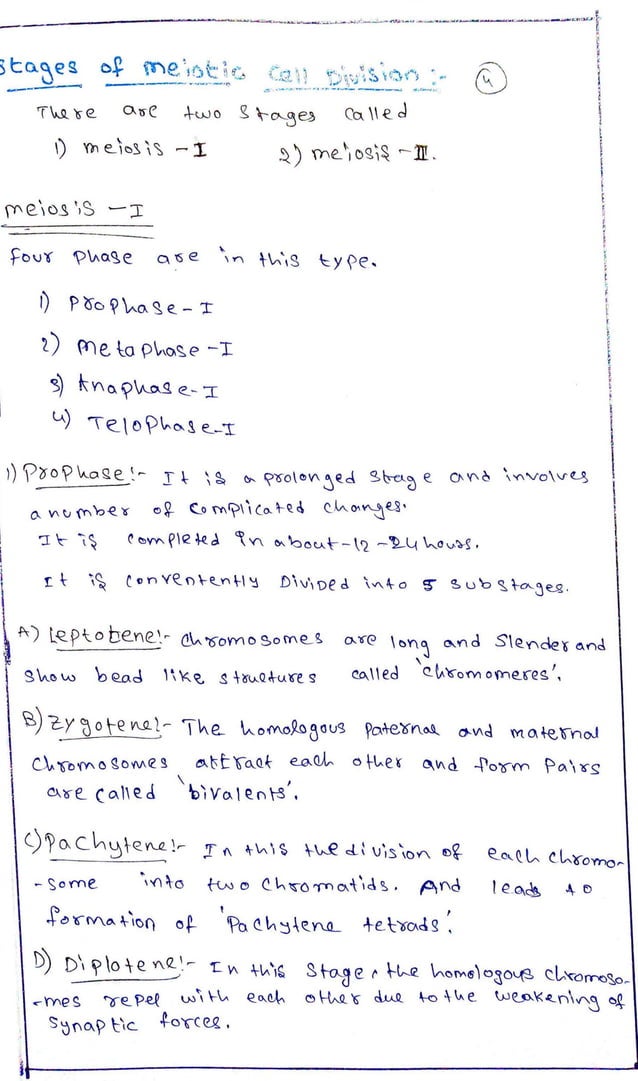 Stages of meiotic Cell Division :- 4
There are two stages called
1) meiosis - I 2) meiosis - II.
meiosis - I
four phase are in this type.
1) Prophase - I
2) metaphase - I
3) Anaphase - I
4) Telophase - I
1) Prophase :- It is a prolonged stage and involves
a number of complicated changes.
It is completed in about - 12 - 24 hours.
It is conventently Divided into 5 substages.
A) Leptobene :- chromosomes are long and slender and
show bead like structures called 'chromomeres'.
B) Zygotene :- The homologous paternal and maternal
chromosomes attract each other and form pairs
are called 'bivalents'.
C) Pachytene :- In this the division of each chromo-
-some into two chromatids. And leads to
formation of 'Pachytene tetrads'.
D) Diplotene :- In this stage, the homologous chromoso-
-mes repel with each other due to the weakening of
synaptic forces.